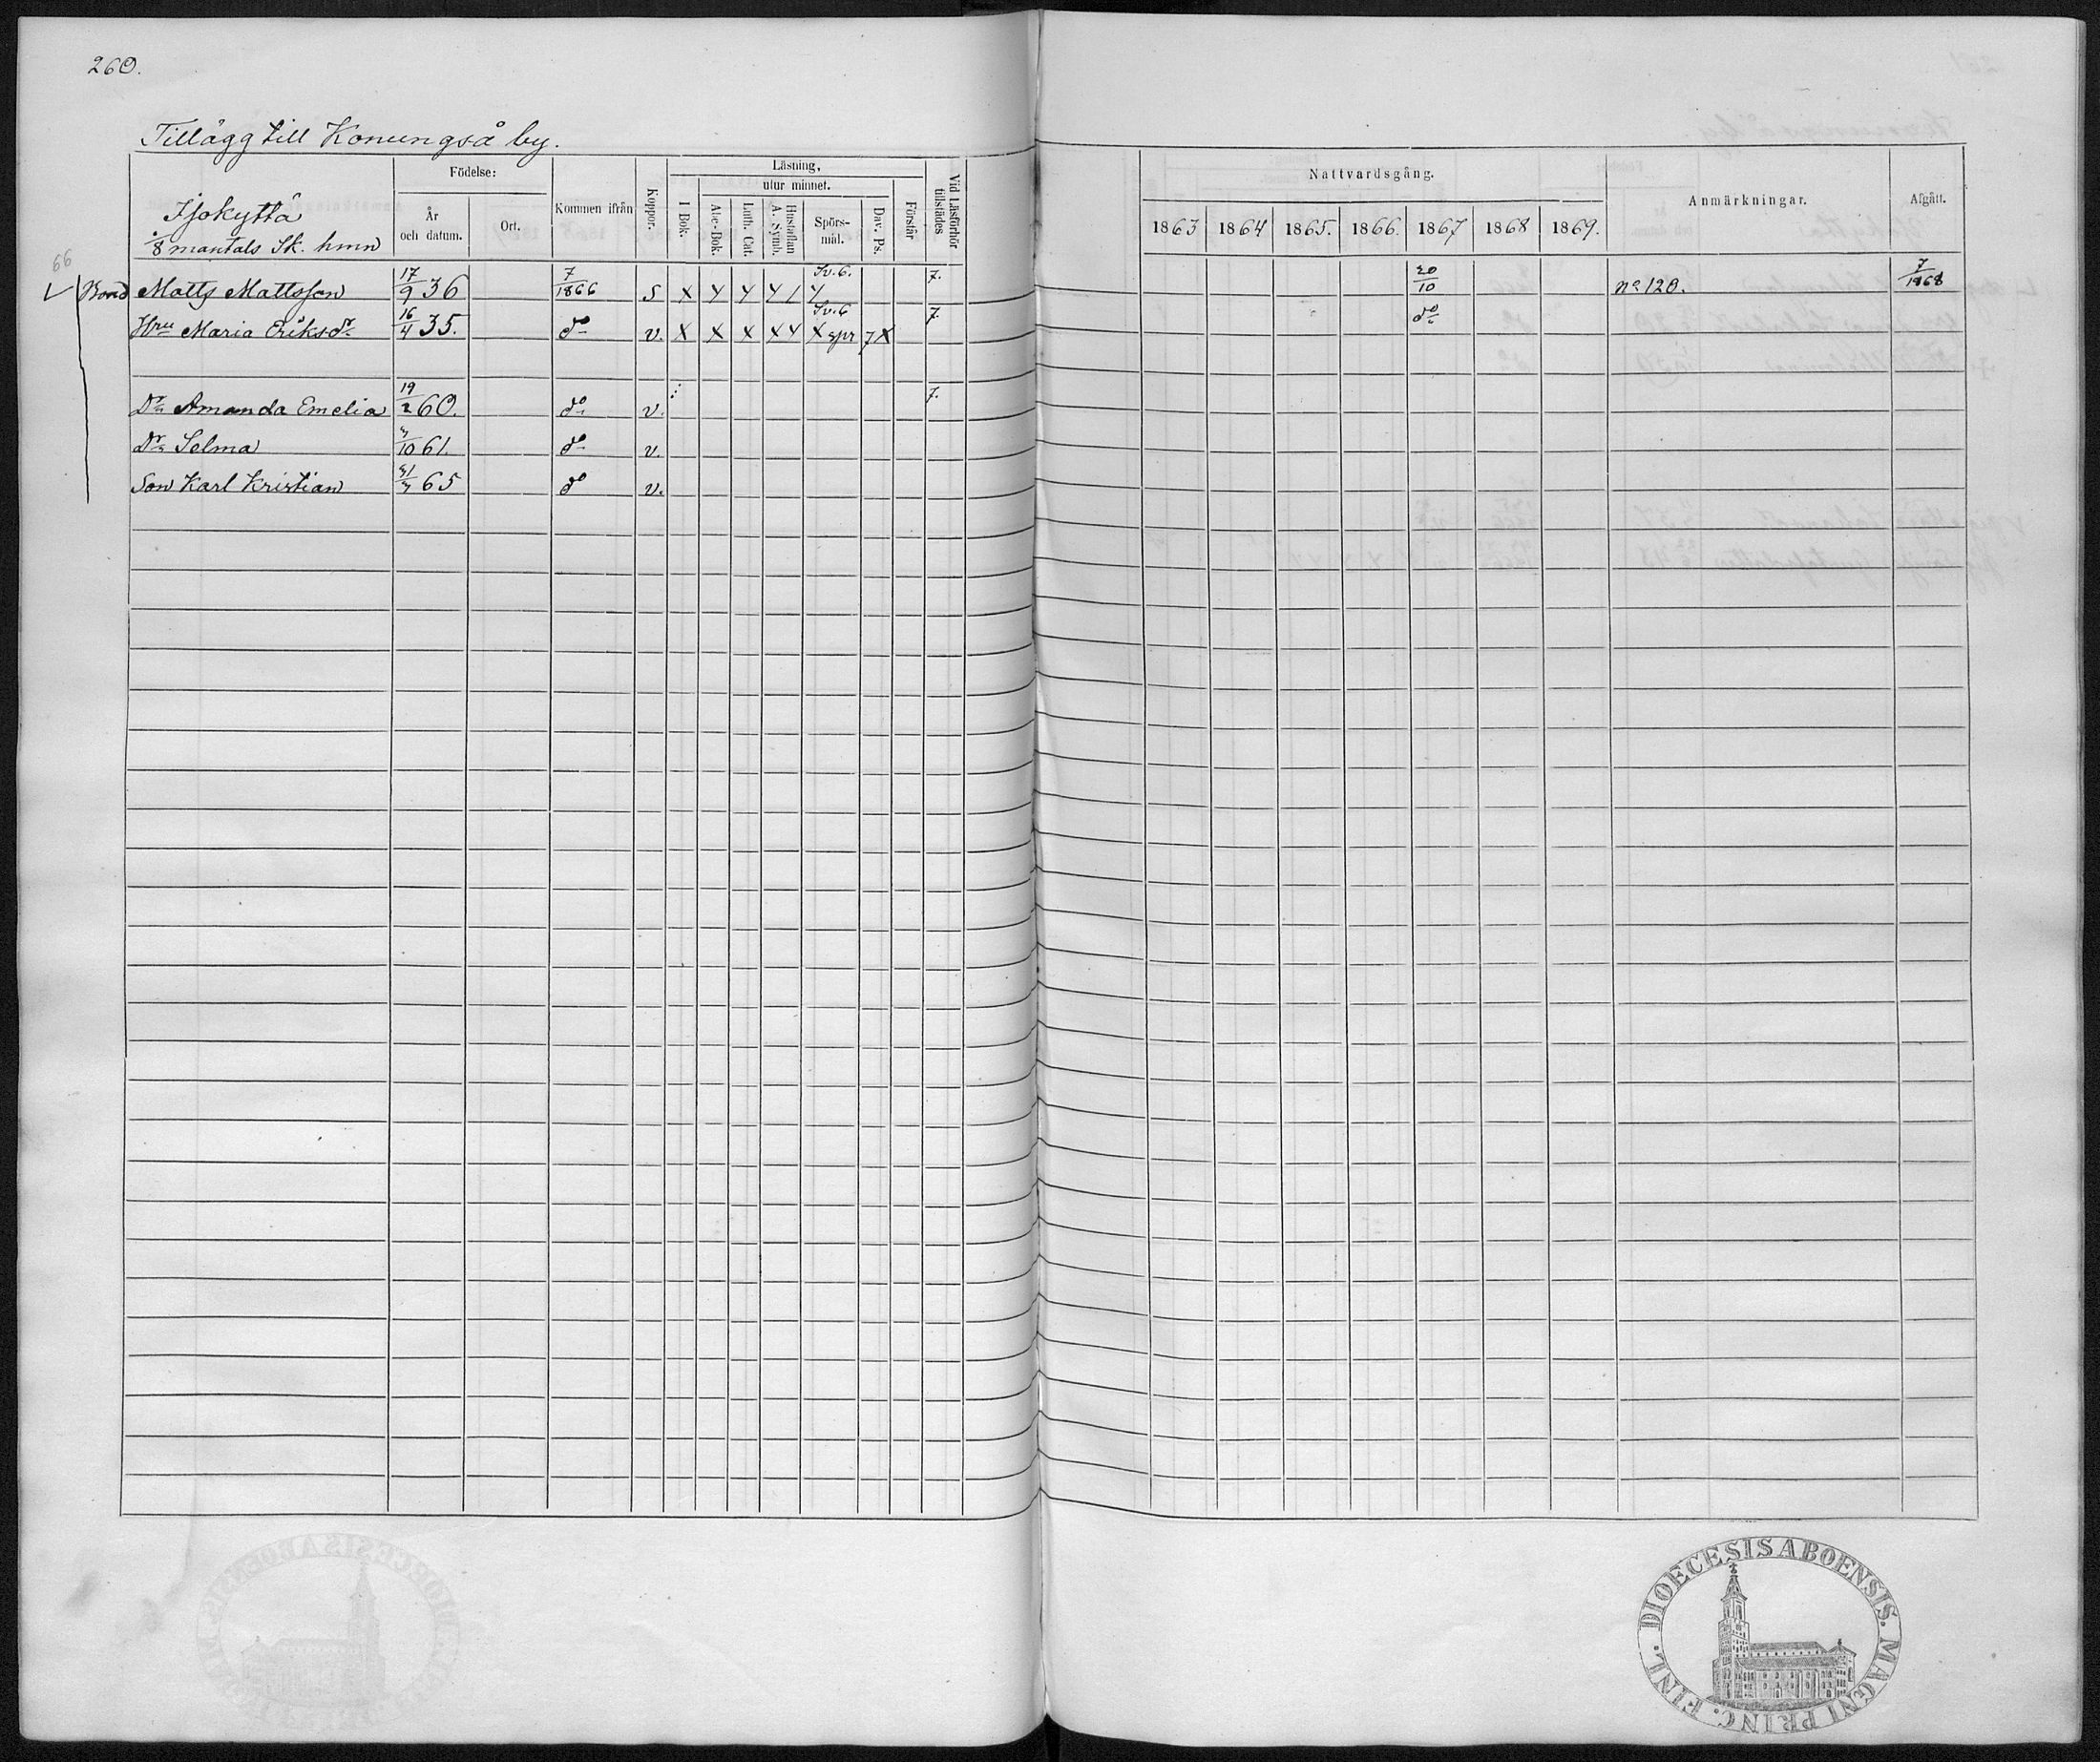 260.
Tillägg till Konungså by.
Ijokyttä
1/8 mantals Sk. hmn
Födelse: År och datum. Ort.
Kommen ifrån
Koppor.
Läsning,
I Bok.
utur minnet.
Abc-Bok. Luth. Cat. Hustaflan A. Symb. Spörs-mål. Dav. Ps.
Förstår
Vid Läsförhör tillstädes
Nattvardsgång.
1863 1864 1865. 1866. 1867 1868 1869.
Anmärkningar.
Afgått.
66
Bond Matts Mattsson 17/9 36 7/1866 S Sv. 6. 7. 20/10 no 120. 7/1868
Hru Maria Eriksdr 16/4 35. do v. X X X X Y X spr 7 X Sv. 6 7. do
Dr Amanda Emelia 19/2 60. do v. 7.
Dr Selma 3/10 61. do v.
Son Karl Kristian 31/3 65 do v.
DIOECESIS ABOENSIS. MAGNI PRINC. FINL.